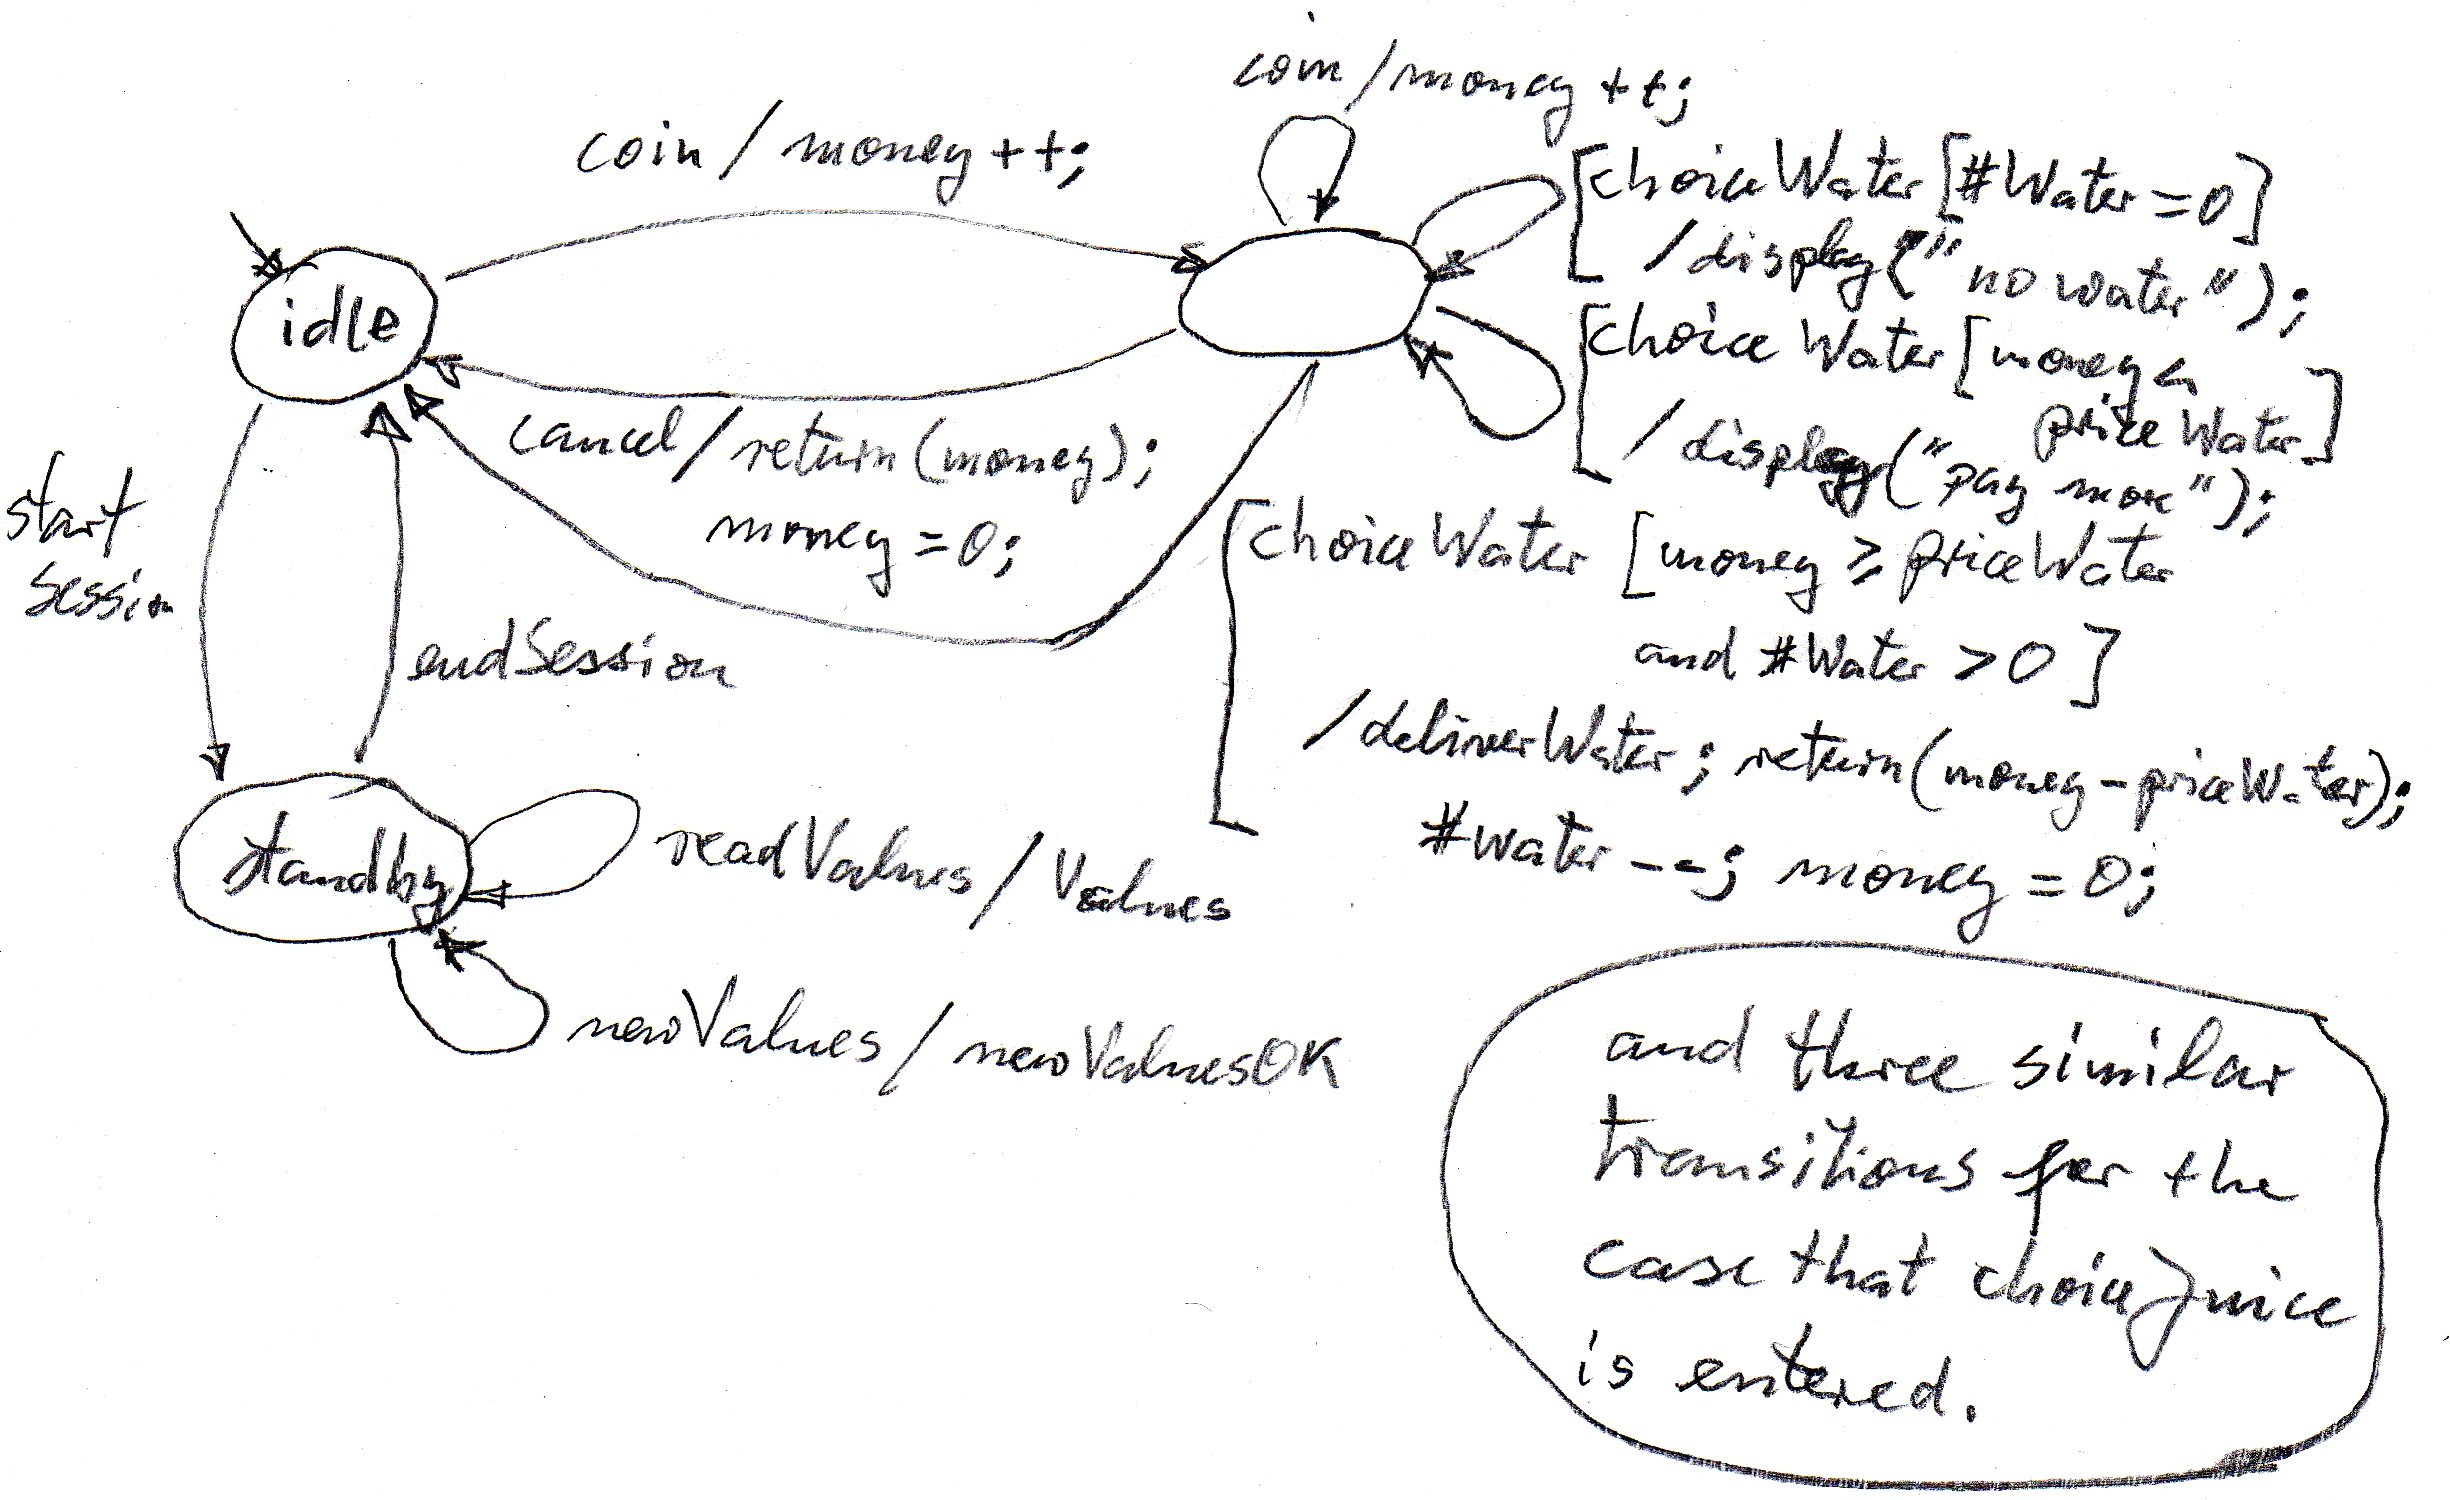 coin / money ++;
coin / money ++;
choiceWater [#Water = 0]
/ display("no water");
idle
choiceWater [money <
priceWater]
/ display("pay more");
cancel / return (money);
money = 0;
start
Session
choiceWater [money ≥ priceWater
and #Water > 0]
endSession
/ deliverWater; return (money - priceWater);
#water --; money = 0;
standby
readValues / Values
newValues / newValuesOK
and three similar
transitions for the
case that choiceJuice
is entered.